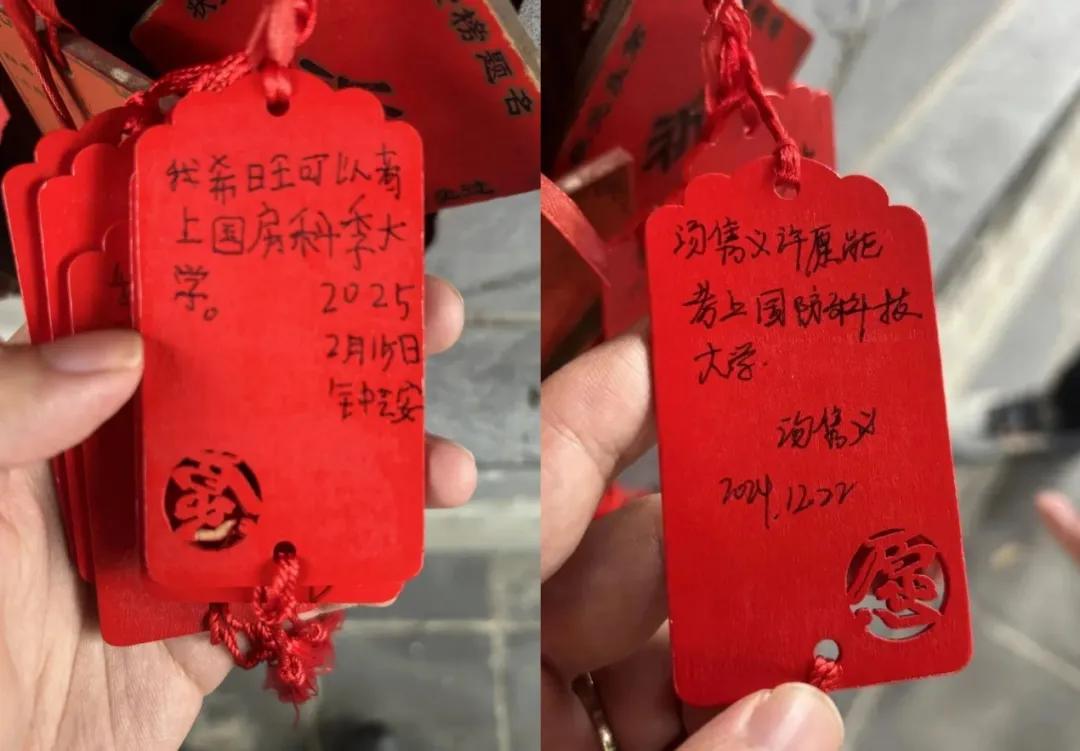 我希旺可以考
上国房科季大
学。
2025
2月15日
钟芸安
愿
汤隽义许愿能
考上国防科技
大学.
汤隽义
2024.12.22
愿
榜题名